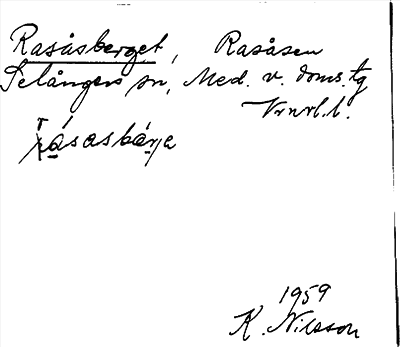 Rasåsberget, Rasåsen
Selångers sn, Med. v. doms. tg
Vrnrl. l.
rásasbárja
1959
K. Nilsson